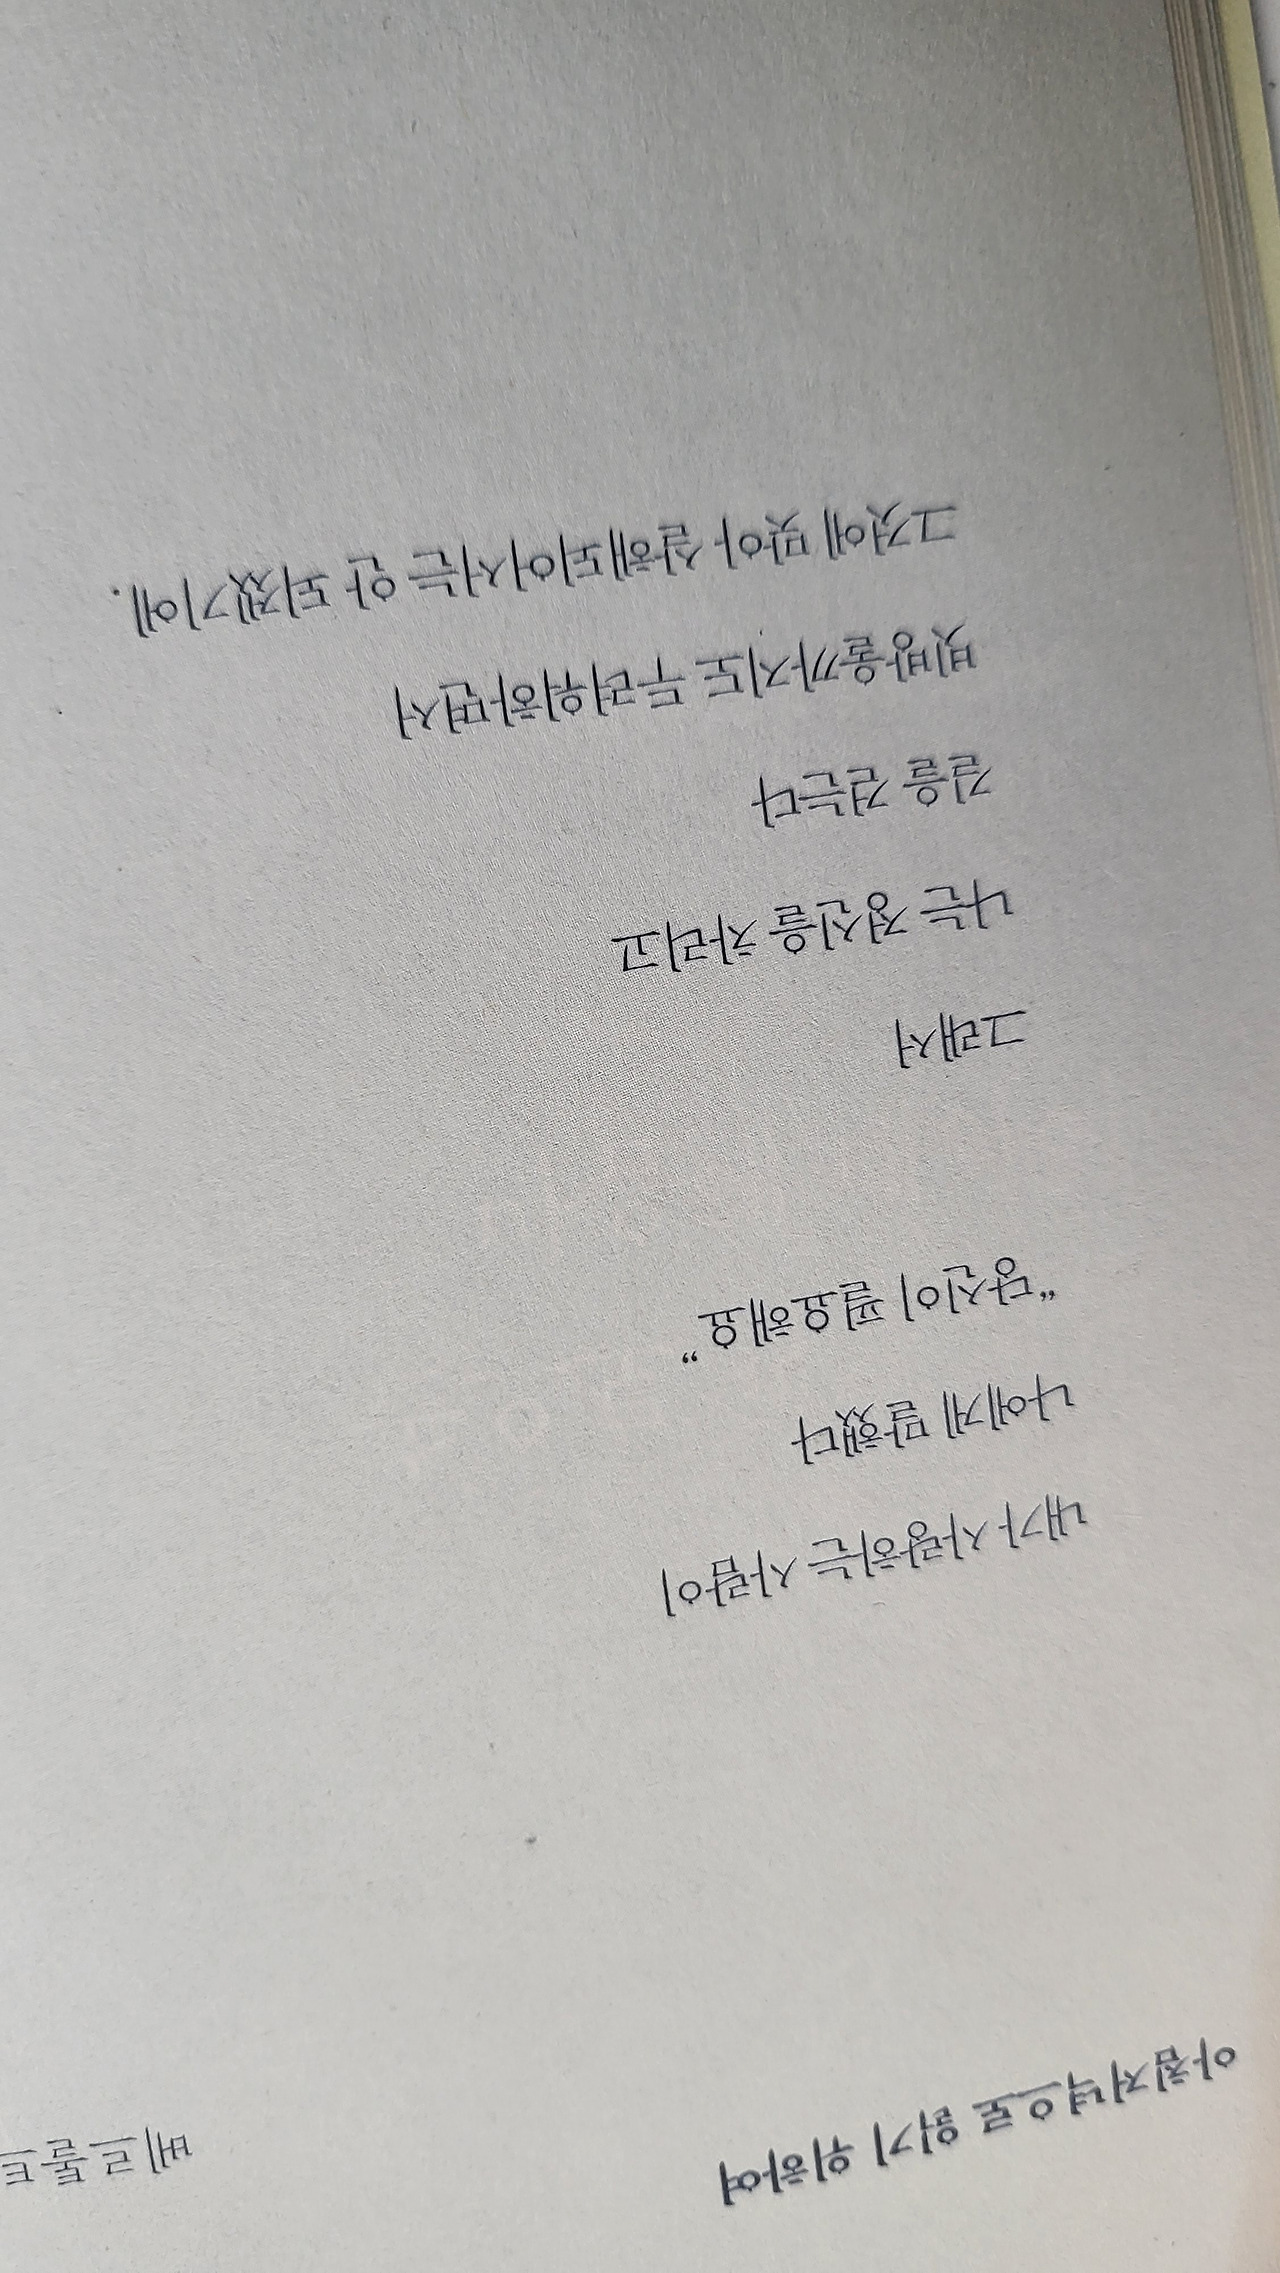 아침저녁으로 읽기 위하여
베르톨트
내가 사랑하는 사람이
나에게 말했다
"당신이 필요해요"
그래서
나는 정신을 차리고
길을 걷는다
빗방울까지도 두려워하면서
그것에 맞아 살해되어서는 안 되겠기에.